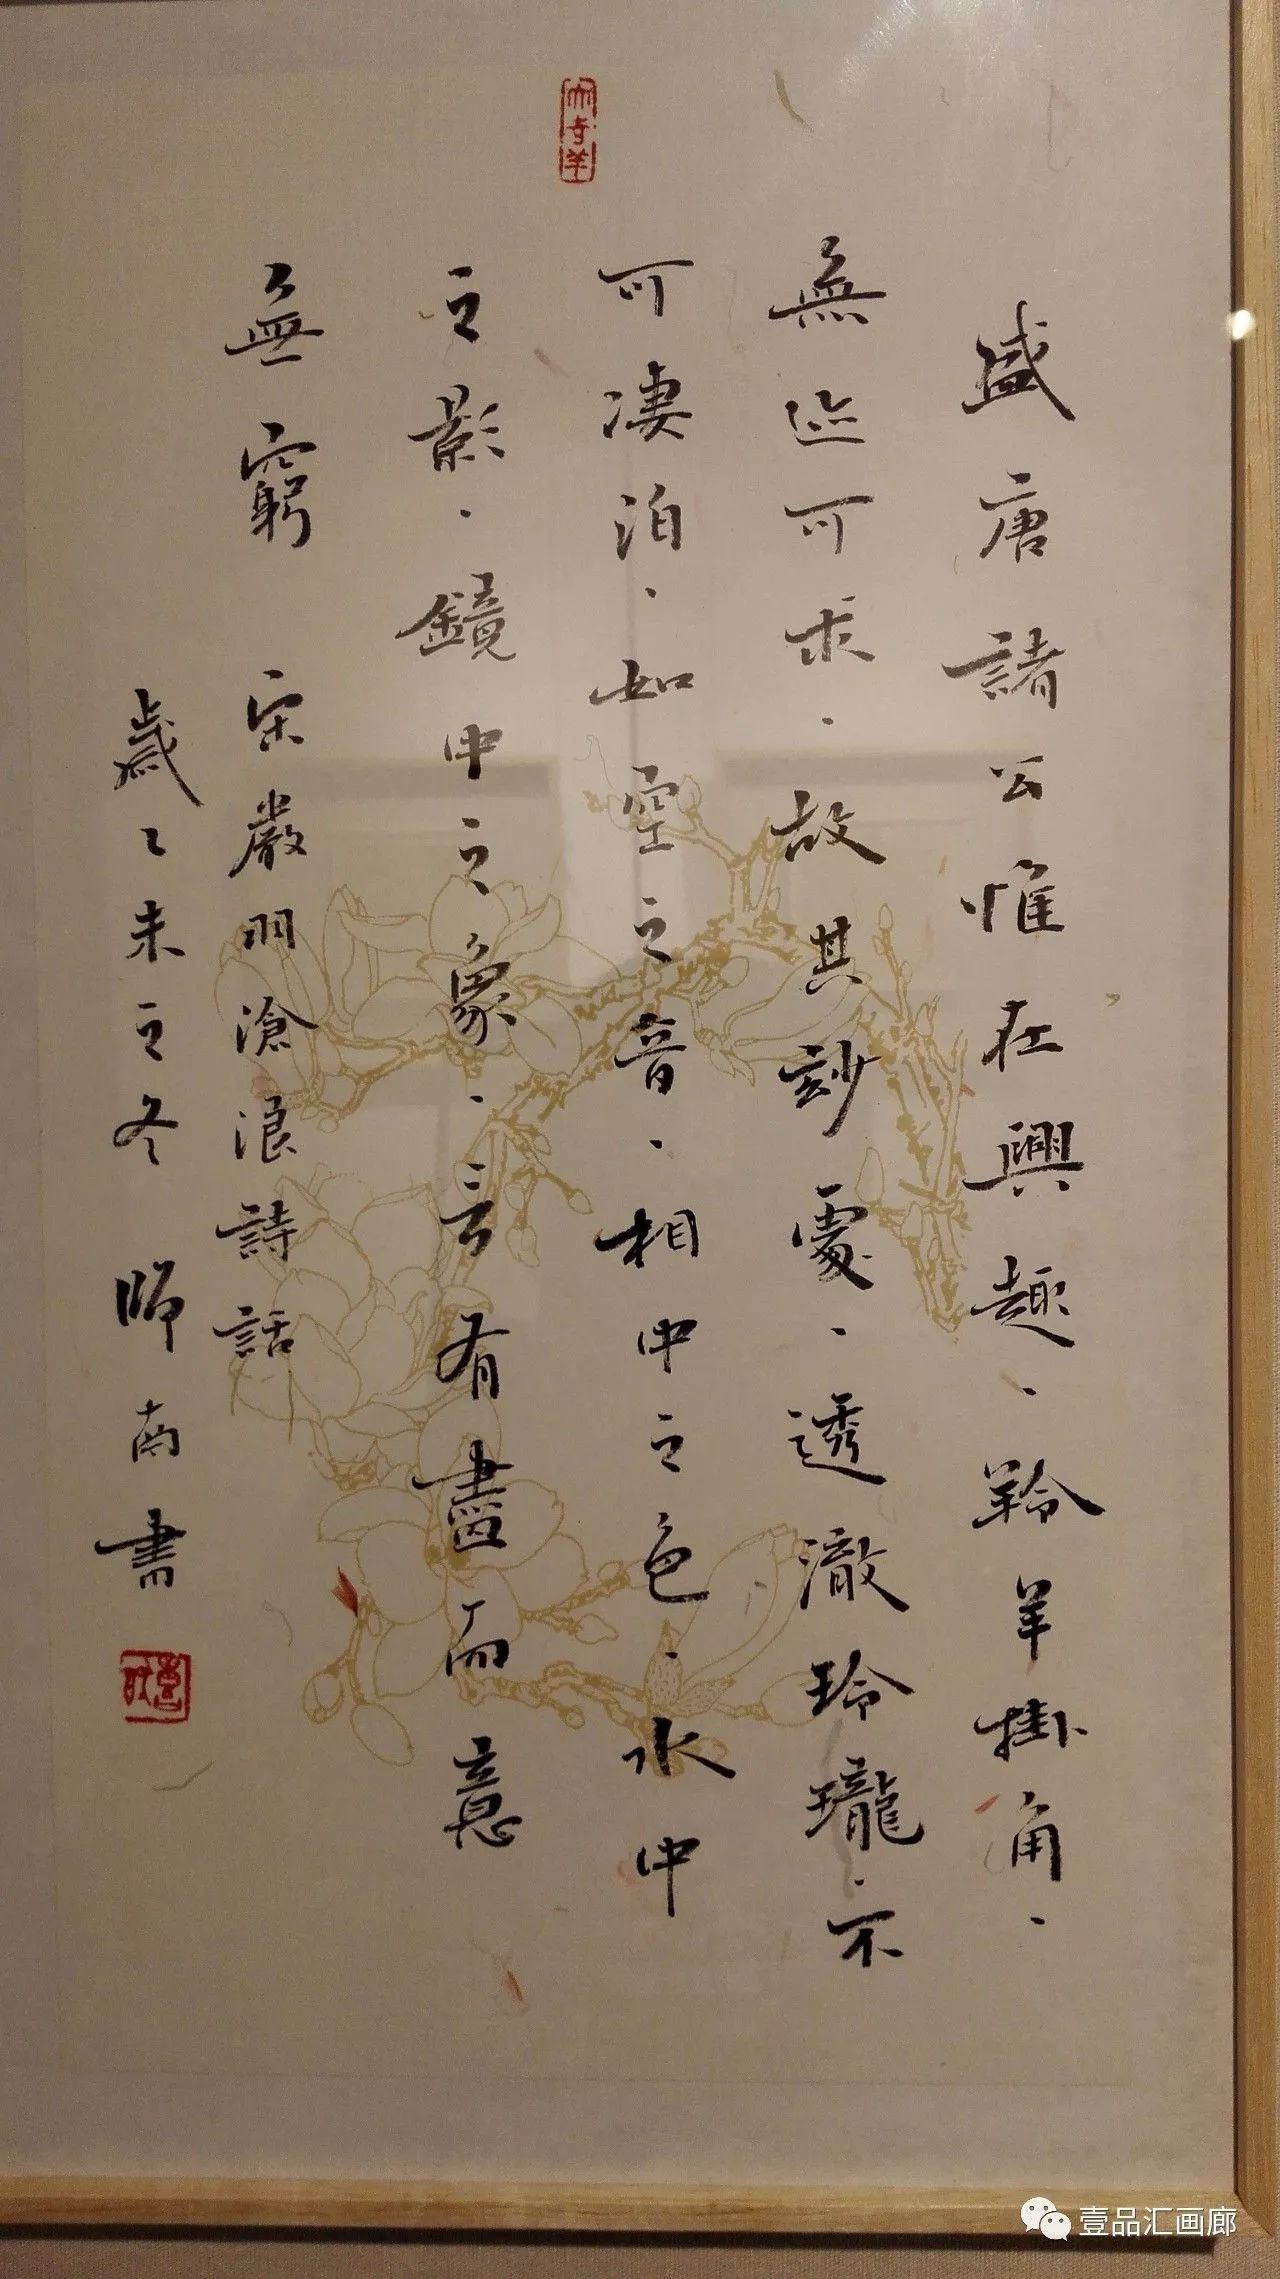 盛唐諸公惟在興趣、羚羊掛角、
無迹可求、故其玅處、透澈玲瓏、不
可凄泊、如空之音、相中之色、水中
之影、鏡中之象、言有盡而意
無窮 宋嚴羽滄浪詩話
歲乙未之冬 師南書
壹品汇画廊